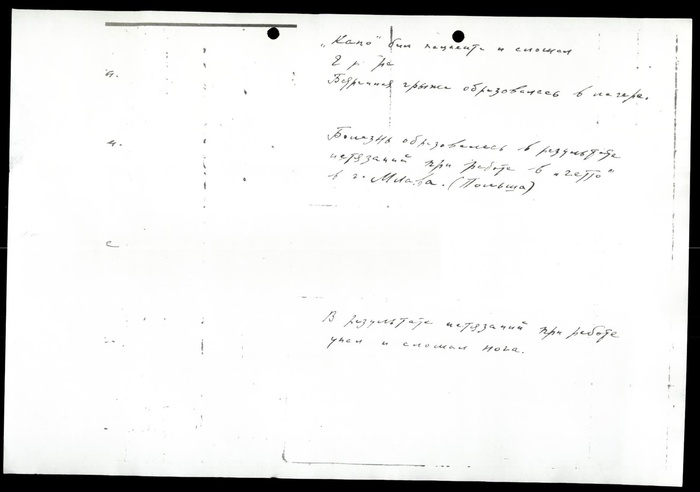 „Капо" бил пациента и сломал
2 р
Бедренная грыжа образовалась в лагере.
Болезнь образовалась в результате
истязаний при работе в „гетто"
в г. Млава. (Польша)
В результате истязаний при работе
упал и сломал нога.